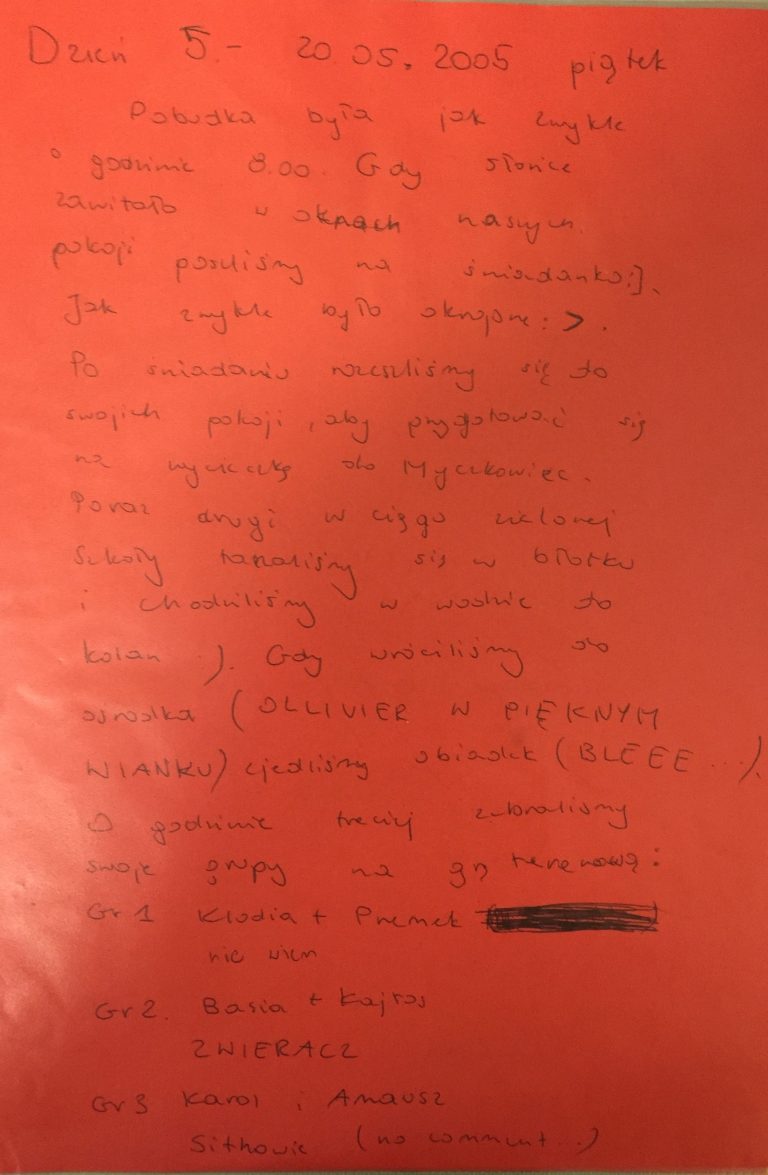 Dzień 5.- 20.05.2005 piątek
Pobudka była jak zwykle
o godzinie 8.00. Gdy słońce
zawitało w oknach naszych
pokoji poszliśmy na śniadanko:].
Jak zwykle było okropne :>.
Po śniadaniu rozeszliśmy się do
swoich pokoji, aby przygotować się
na wycieczkę do Myczkowiec.
Poraz drugi w ciągu zielonej
szkoły taplaliśmy się w błotku
i chodziliśmy w wodzie do
kolan :). Gdy wróciliśmy do
ośrodka (OLLIVIER W PIĘKNYM
WIANKU) zjedliśmy obiadek (BLEEE...).
O godzinie trzeciej zebraliśmy
swoje grupy na grę terenową:
Gr 1 Klodia + Przemek
nie wiem
Gr 2. Basia + Kajtos
ZWIERACZ
Gr 3 Karol i
Sithowie (no comment...)